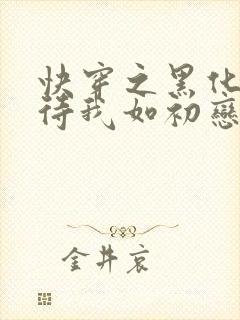 快穿之黑化
待我如初戀
金井哀